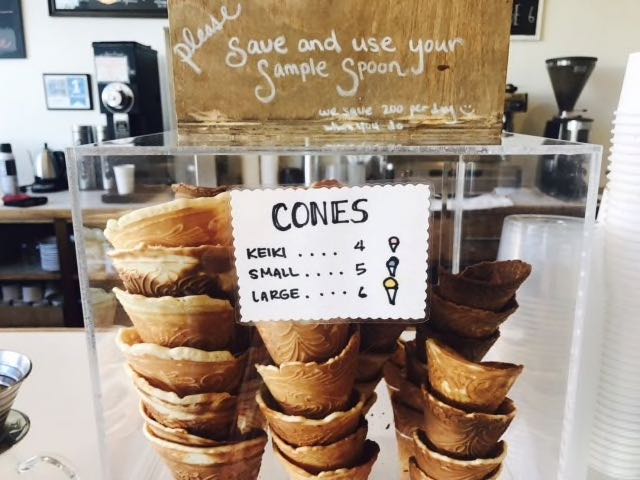 please
Save and use your
Sample Spoon
we save 200 per day
when you do
CONES
KEIKI .... 4
SMALL .... 5
LARGE .... 6